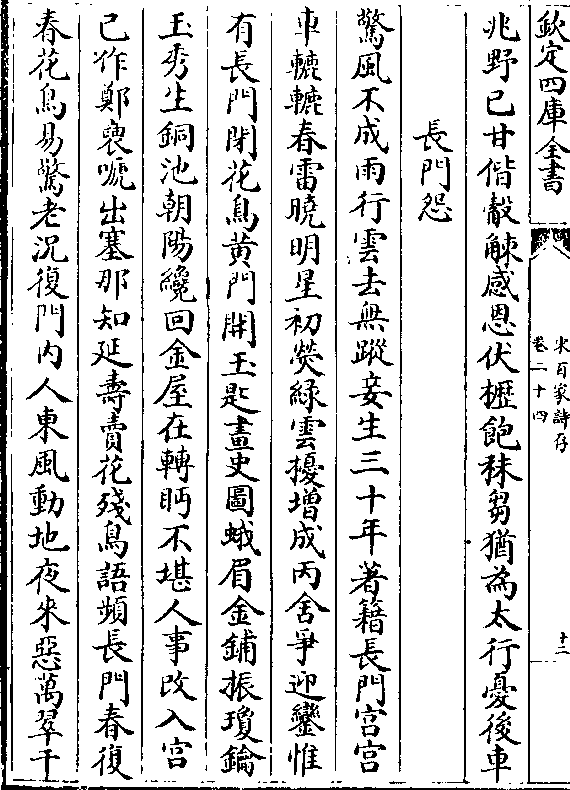 欽定四庫全書
宋百家詩存
卷二十四
十二
兆野已甘偕觳觫感恩伏櫪飽秣芻猶為太行憂後車
長門怨
驚風不成雨行雲去無蹤妾生三十年著籍長門宫宫
車轆轆春雷曉明星初熒綠雲擾增成丙舍爭迎鑾惟
有長門閉花鳥黄門開玉匙畫史圖蛾眉金鋪振瓊鑰
玉秀生銅池朝陽纔回金屋在轉眄不堪人事改入宫
已作鄭褎嗁出塞那知延壽賣花殘鳥語頻長門春復
春花鳥易驚老况復門内人東風動地夜来惡萬翠千